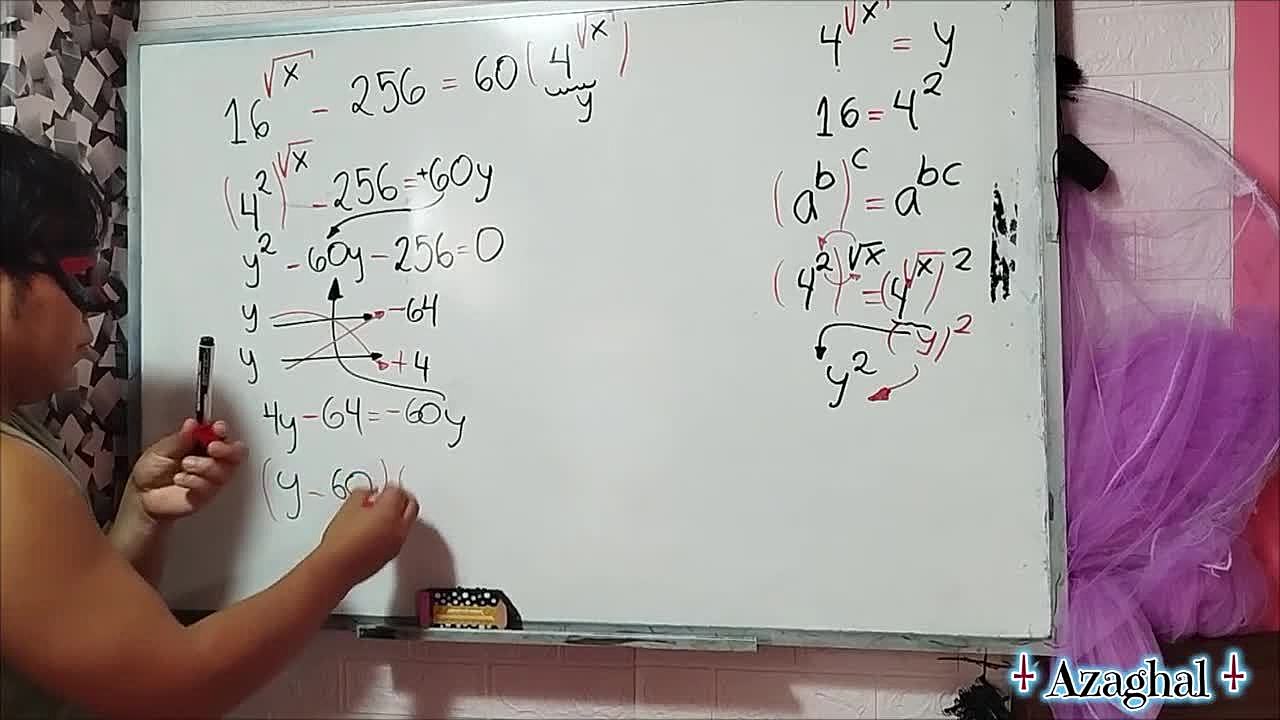 16^√x - 256 = 60(4^√x)
y
(4²)^√x - 256 = +60y
y² - 60y - 256 = 0
y -64
y +4
4y - 64 = -60y
(y - 60)(
4^√x = y
16 = 4²
(a^b)^c = a^bc
(4²)^√x = (4^√x)²
(y)²
y²
Azaghal